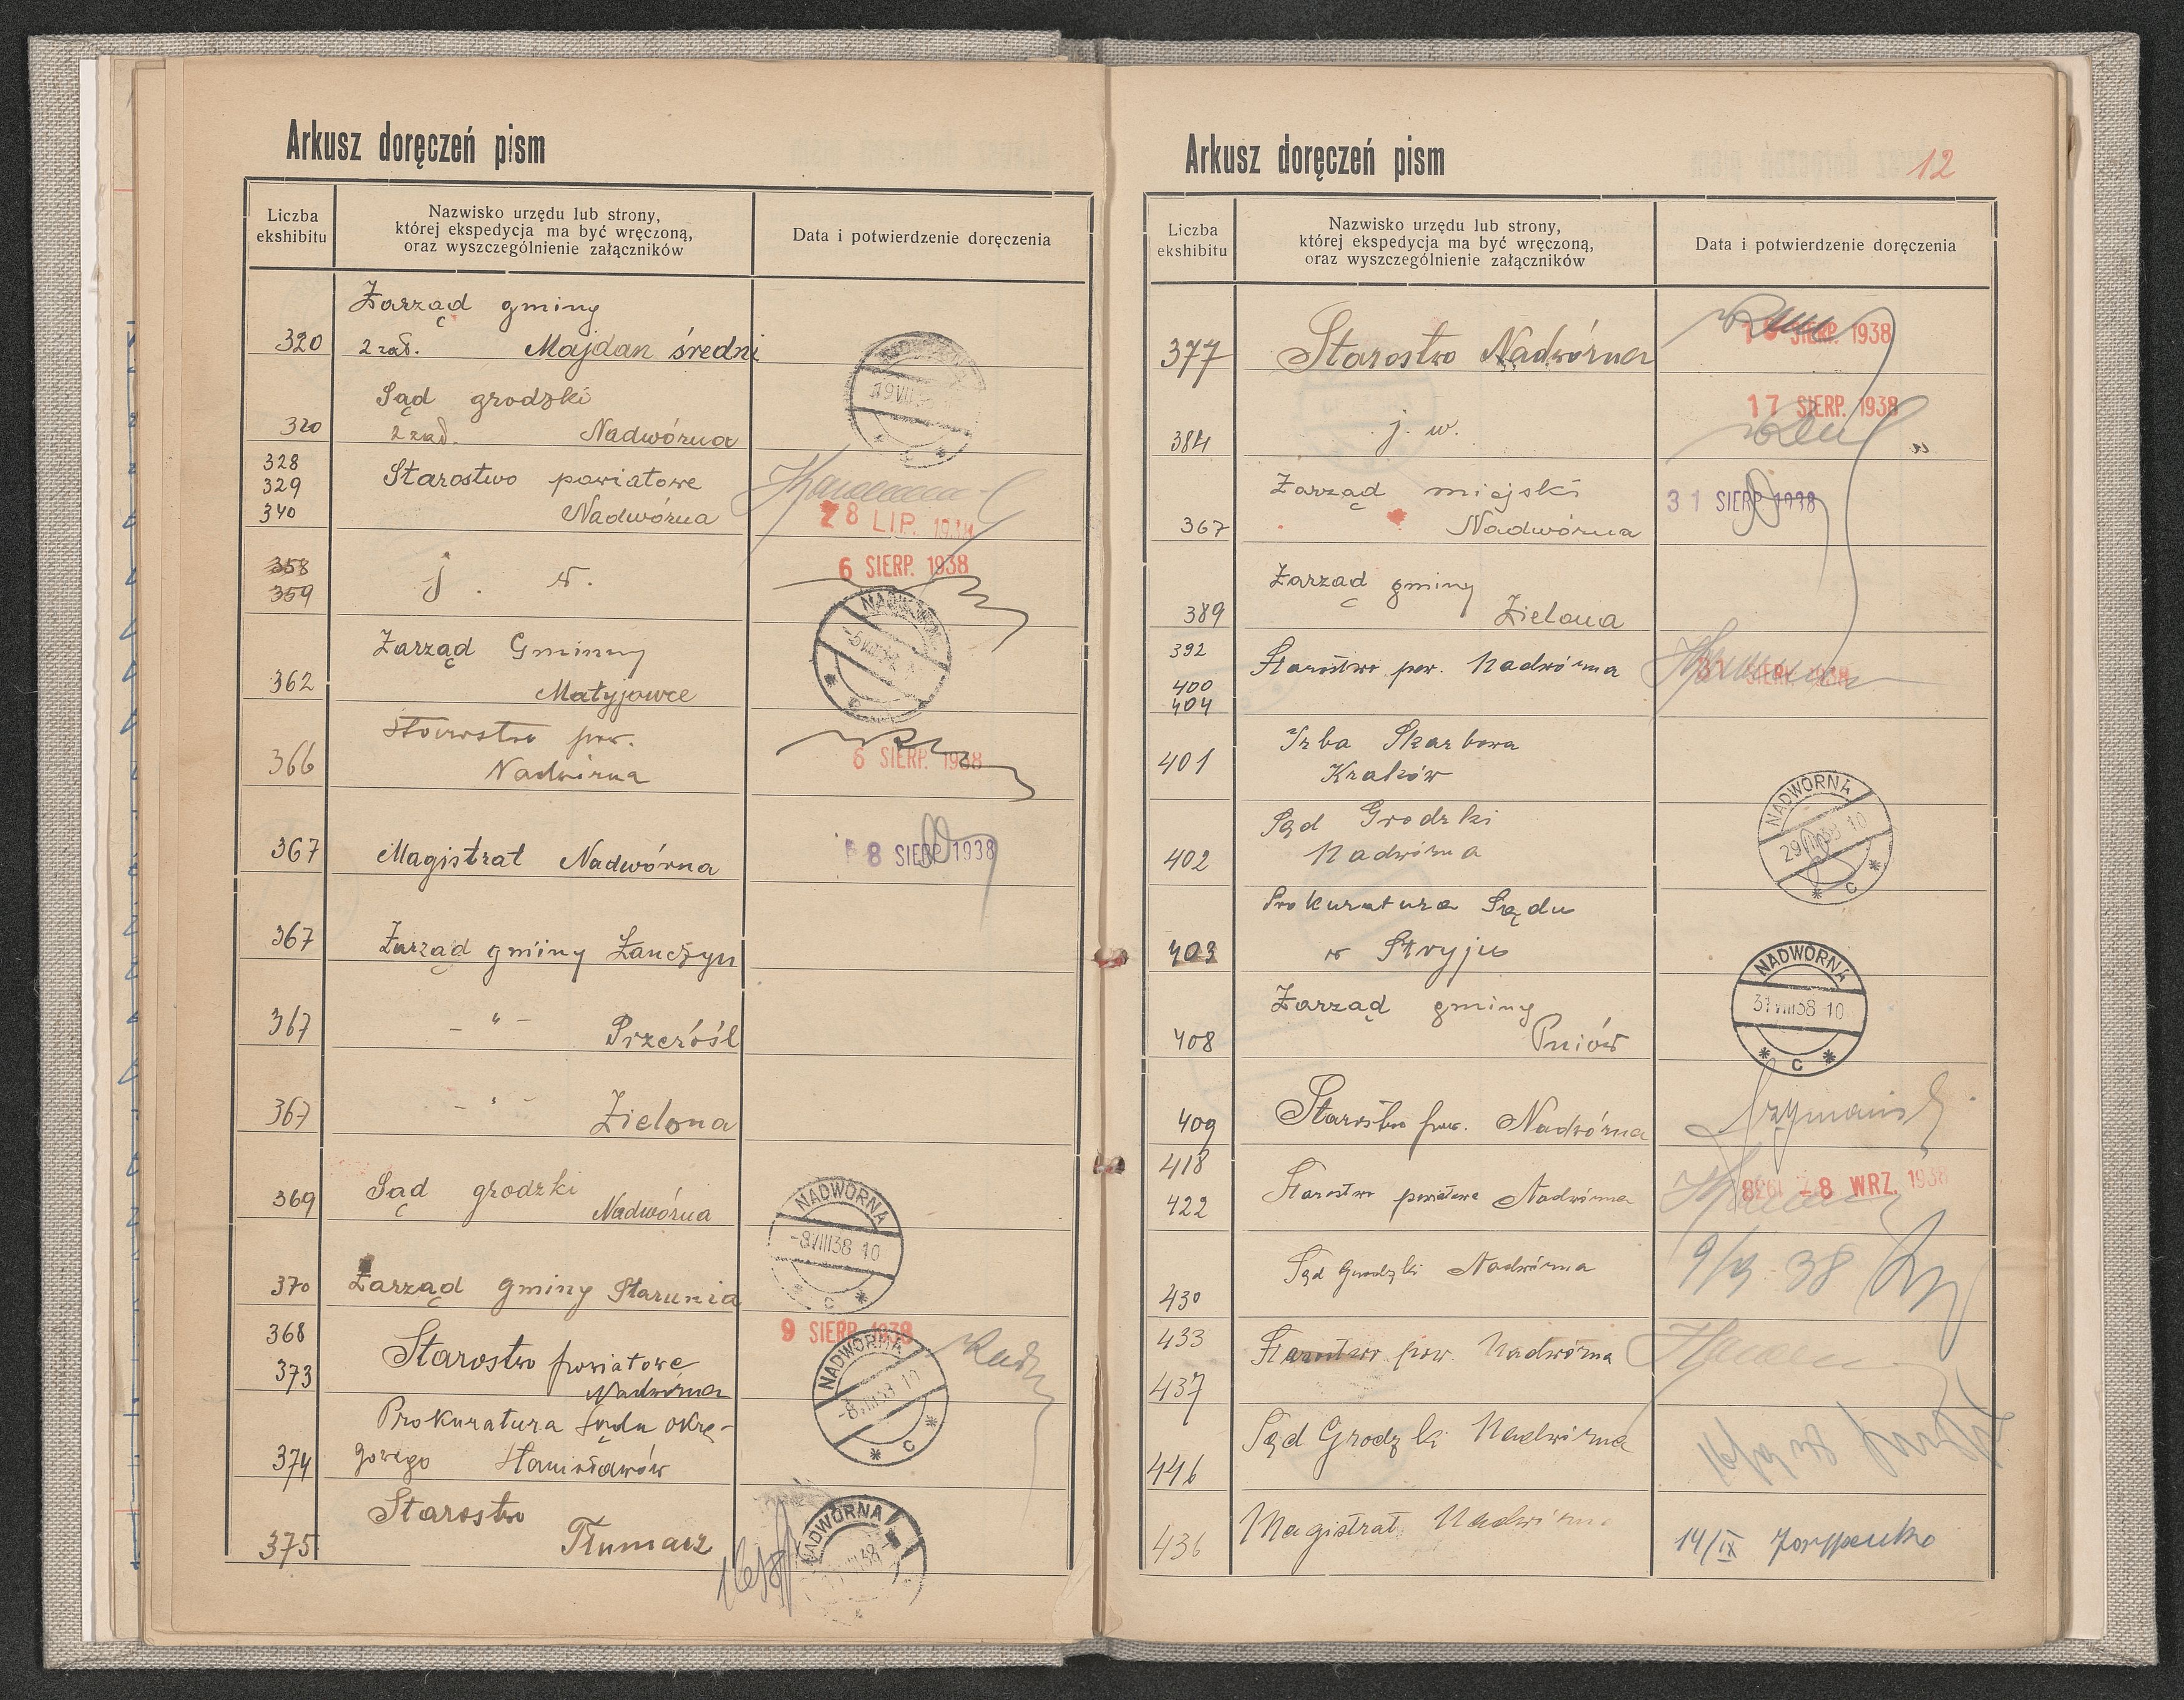 Arkusz doręczeń pism
Liczba
ekshibitu
Nazwisko urzędu lub strony,
której ekspedycja ma być wręczoną,
oraz wyszczególnienie załączników
Data i potwierdzenie doręczenia
Zarząd gminy
320 2 zał. Majdan średni
NADWÓRNA
Sąd grodzki
320 2 zał. Nadwórna
328
329 Starostwo powiatowe
340 Nadwórna
28 LIP. 1938
358 j. w.
359
6 SIERP. 1938
Zarząd Gminny
362 Matyjowce
NADWÓRNA
Starostwo pow.
366 Nadwórna
6 SIERP. 1938
367 Magistrat Nadwórna
8 SIERP. 1938
367 Zarząd gminy Łanczyn
367 - " - Przerośl
367 - " - Zielona
Sąd grodzki
369 Nadwórna
NADWÓRNA
-8VIII38 10
C
370 Zarząd gminy Starunia
368
373 Starostwo powiatowe
Nadwórna
9 SIERP. 1938
NADWÓRNA
-8.VIII38 10
C
Prokuratura Sądu okrę-
374 gowego Stanisławów
Starostwo
375 Tłumacz
NADWÓRNA
Arkusz doręczeń pism
12
Liczba
ekshibitu
Nazwisko urzędu lub strony,
której ekspedycja ma być wręczoną,
oraz wyszczególnienie załączników
Data i potwierdzenie doręczenia
377 Starostwo Nadwórna
SIERP. 1938
384 j. w.
17 SIERP. 1938
Zarząd miejski
367 Nadwórna
31 SIERP. 1938
Zarząd gminy
389 Zielona
392
400 Starostwo pow. Nadwórna
404
31 SIERP. 1938
Izba Skarbowa
401 Kraków
Sąd Grodzki
402 Nadwórna
NADWÓRNA
29VIII38 10
C
Prokuratura Sądu
403 w Stryju
Zarząd gminy
408 Pniów
NADWÓRNA
31VIII38 10
C
409 Starostwo pow. Nadwórna
Szymański
418
422 Starostwo powiatowe Nadwórna
-8 WRZ. 1938
430 Sąd Grodzki Nadwórna
9/9 38
433
437 Starostwo pow. Nadwórna
446 Sąd Grodzki Nadwórna
436 Magistrat Nadwórna
14/IX